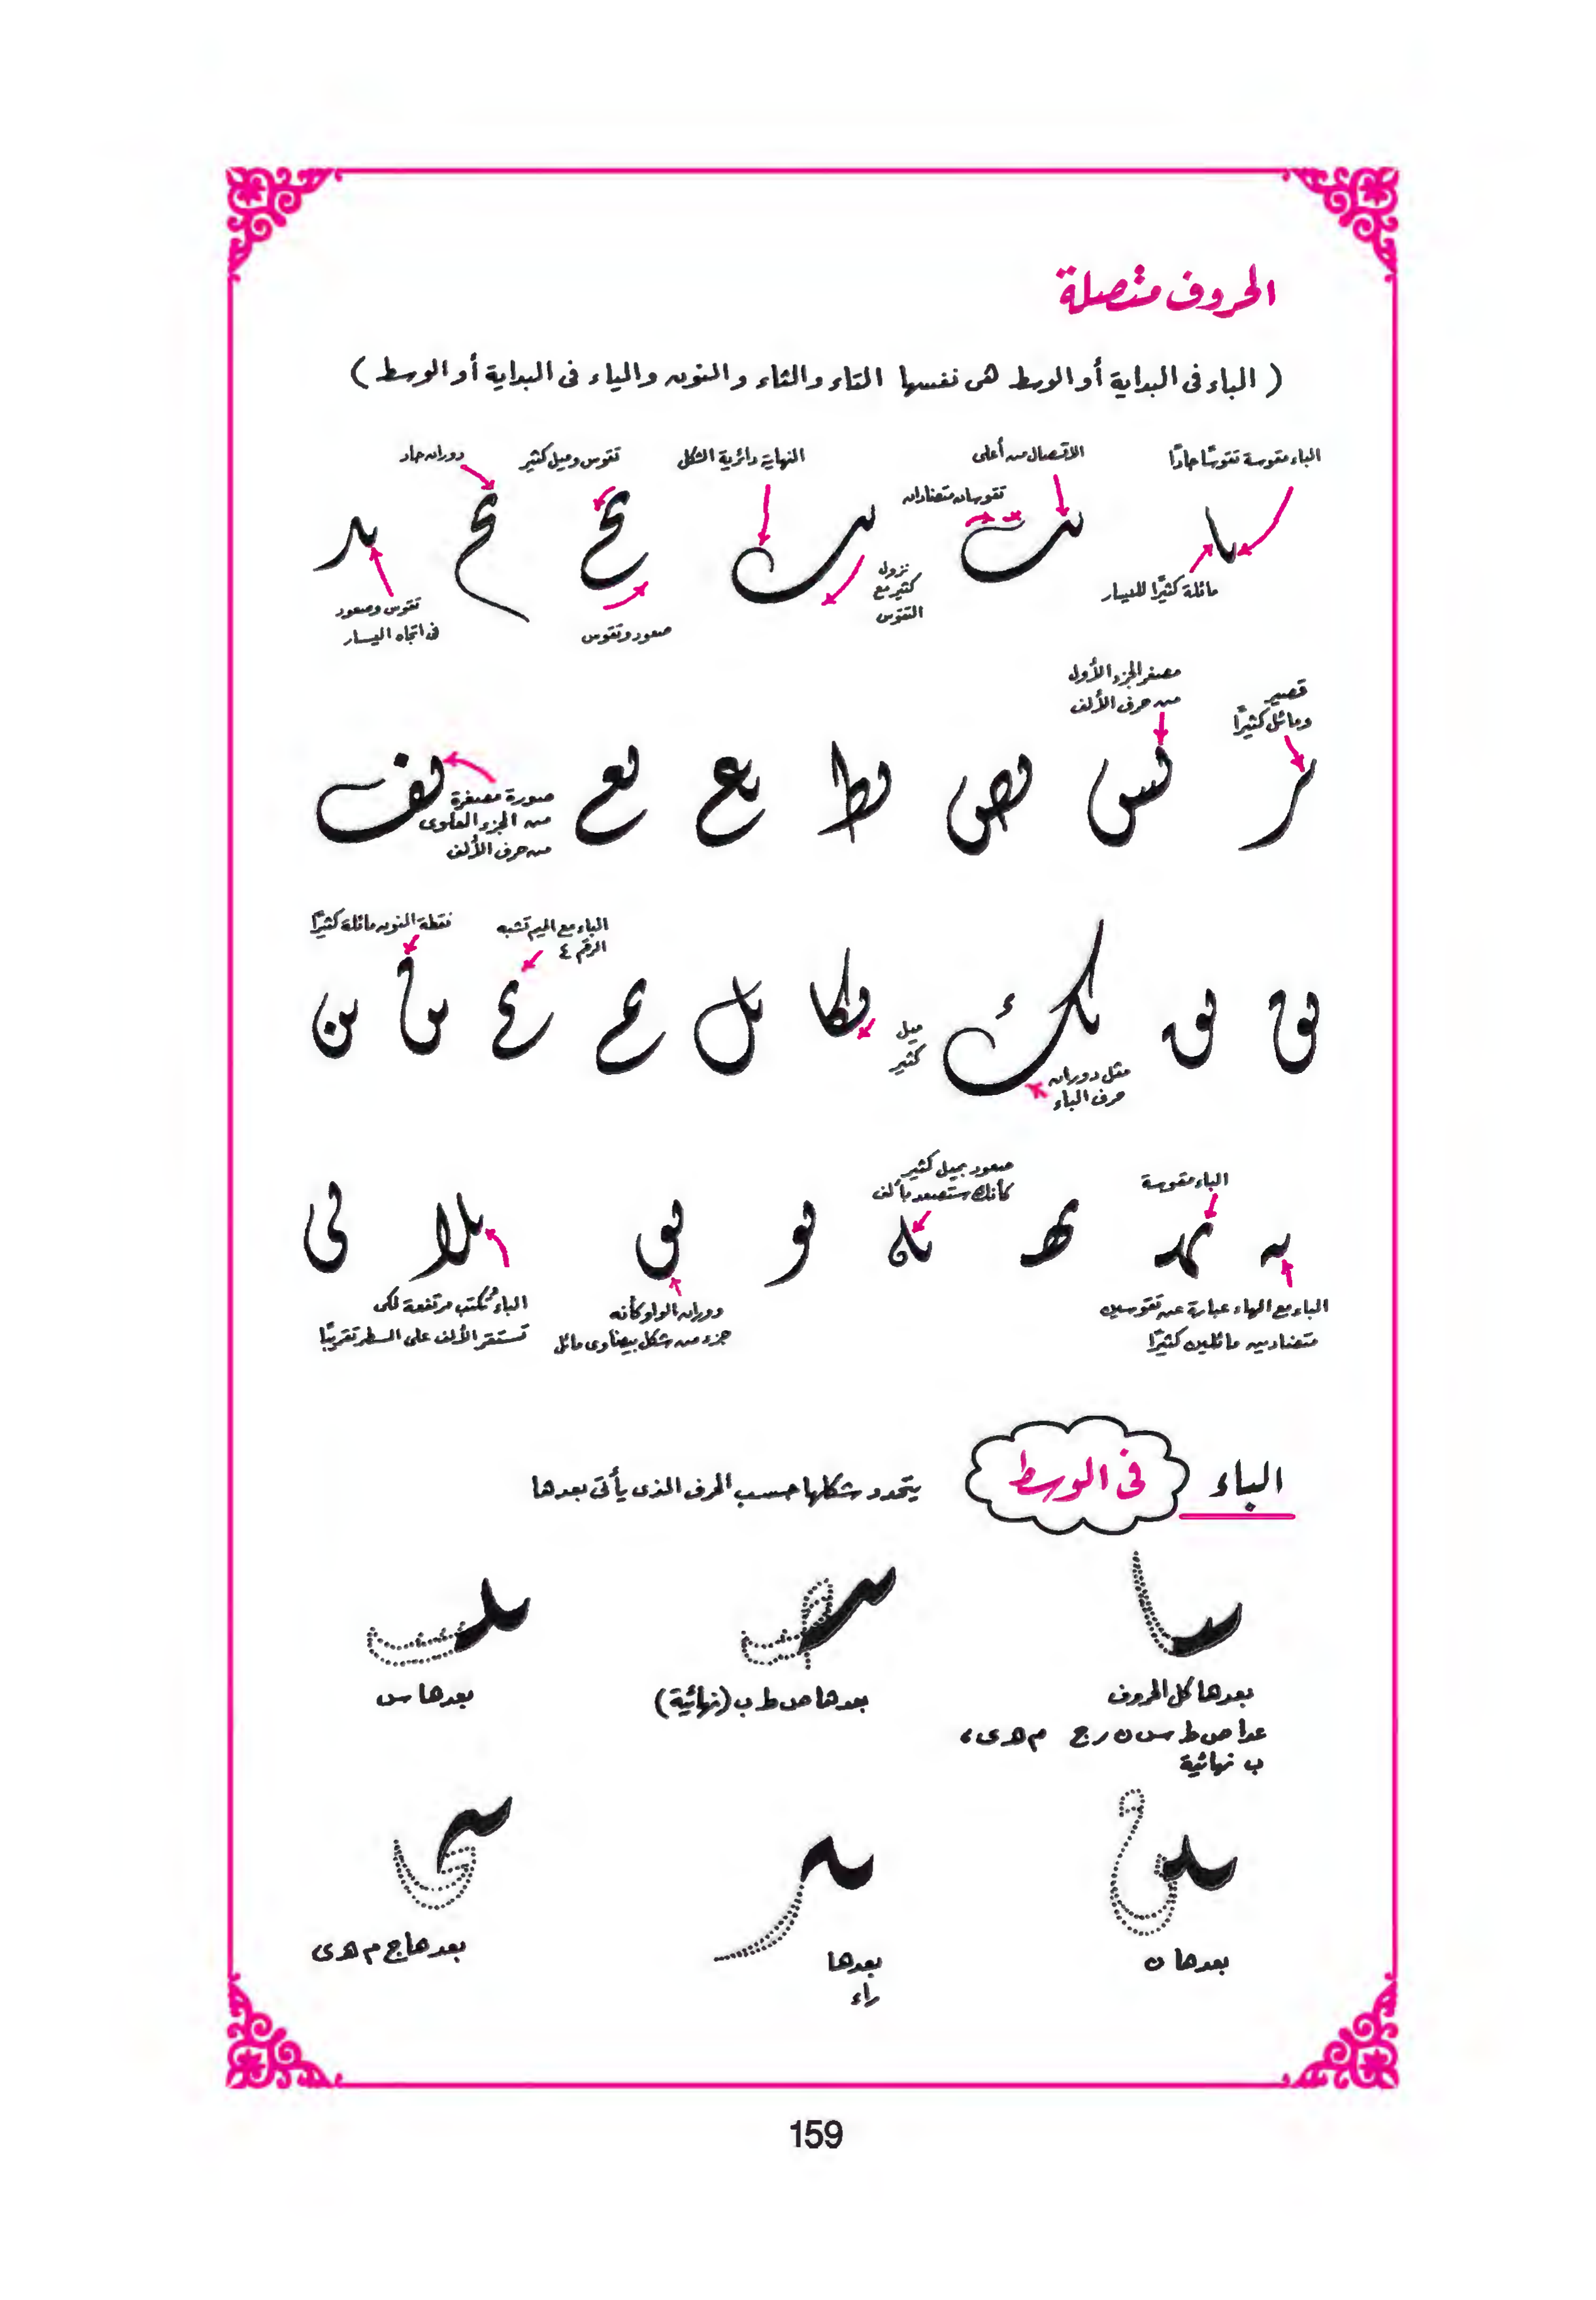 الحروف متصلة
( الباء فى البداية أو الوسط هى نفسها التاء والثاء والنون والياء فى البداية أو الوسط )
الباء مقوسة تقوسًا حادًا
مائلة كثيرًا لليسار
با
الاتصال من أعلى
تقوسان متضادان
بب
النهاية دائرية الشكل
نزول
كثير مع
التقوس
بب
تقوس وميل كثير
صعود وتقوس
بح
دوران حاد
بح
تقوس وصعود
فى اتجاه اليسار
بد
قصير
ومائل كثيرًا
بر
مصغر الجزء الأول
من حرف الألف
بس
بص
بط
بع
بع
صورة مصغرة
من الجزء العلوى
من حرف الألف
بف
بق
بق
مثل دوران
حرف الباء
بك
ميل
كثير
بكا
بل
بم
الباء مع الميم تشبه
الرقم ٤
بم
نقطة النون مائلة كثيرًا
بن
بن
به
الباء مع الهاء عبارة عن تقوسين
متضادين مائلين كثيرًا
الباء مقوسة
بهد
بهـ
صعود بميل كثير
كأنك ستصعد بألف
به
بو
بو
دوران الواو كأنه
جزء من شكل بيضاوى مائل
بلا
الباء تُكتب مرتفعة لكى
تستقر الألف على السطر تقريبًا
بى
الباء فى الوسط
يتحدد شكلها حسب الحرف الذى يأتى بعدها
بعدها كل الحروف
عدا ص ط س ن ر ج م هـ ى ،
ب نهائية
بعدها ص ط ب (نهائية)
بعدها س
بعدها ن
بعدها
راء
بعدها ج م هـ ى
159